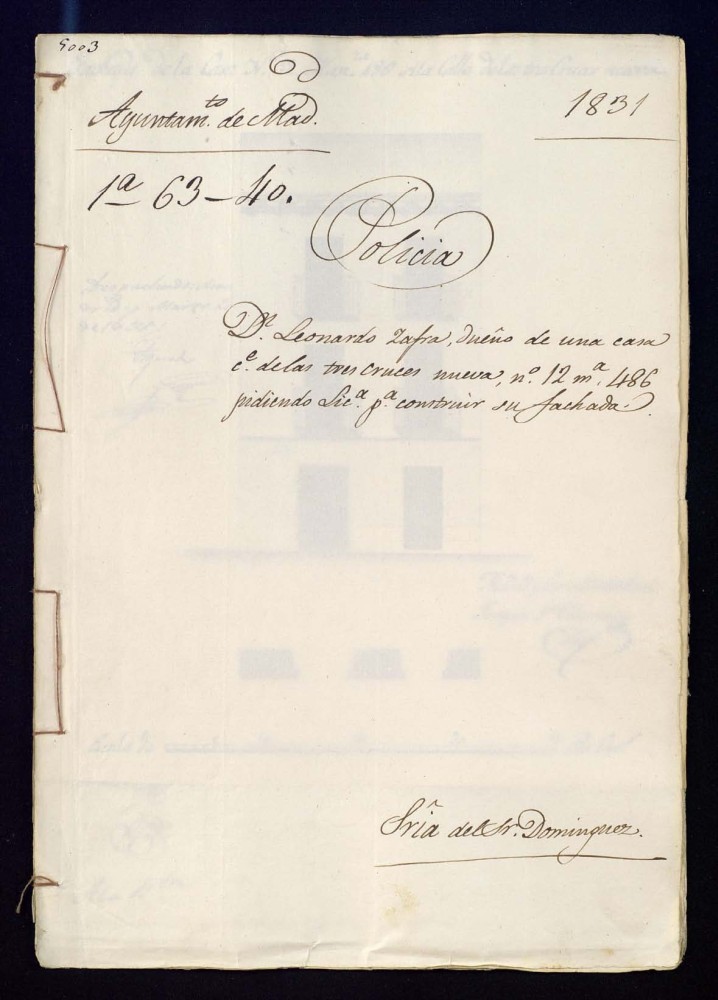 5003
Ayuntam.to de Mad.d
1831
1ª 63-40.
Policia
D.n Leonardo Zafra, dueño de una casa
c.e de las tres cruces nueva, n.o 12 m.a 486
pidiendo Lic.a p.a construir su fachada.
Sria del Sr. Dominguez.